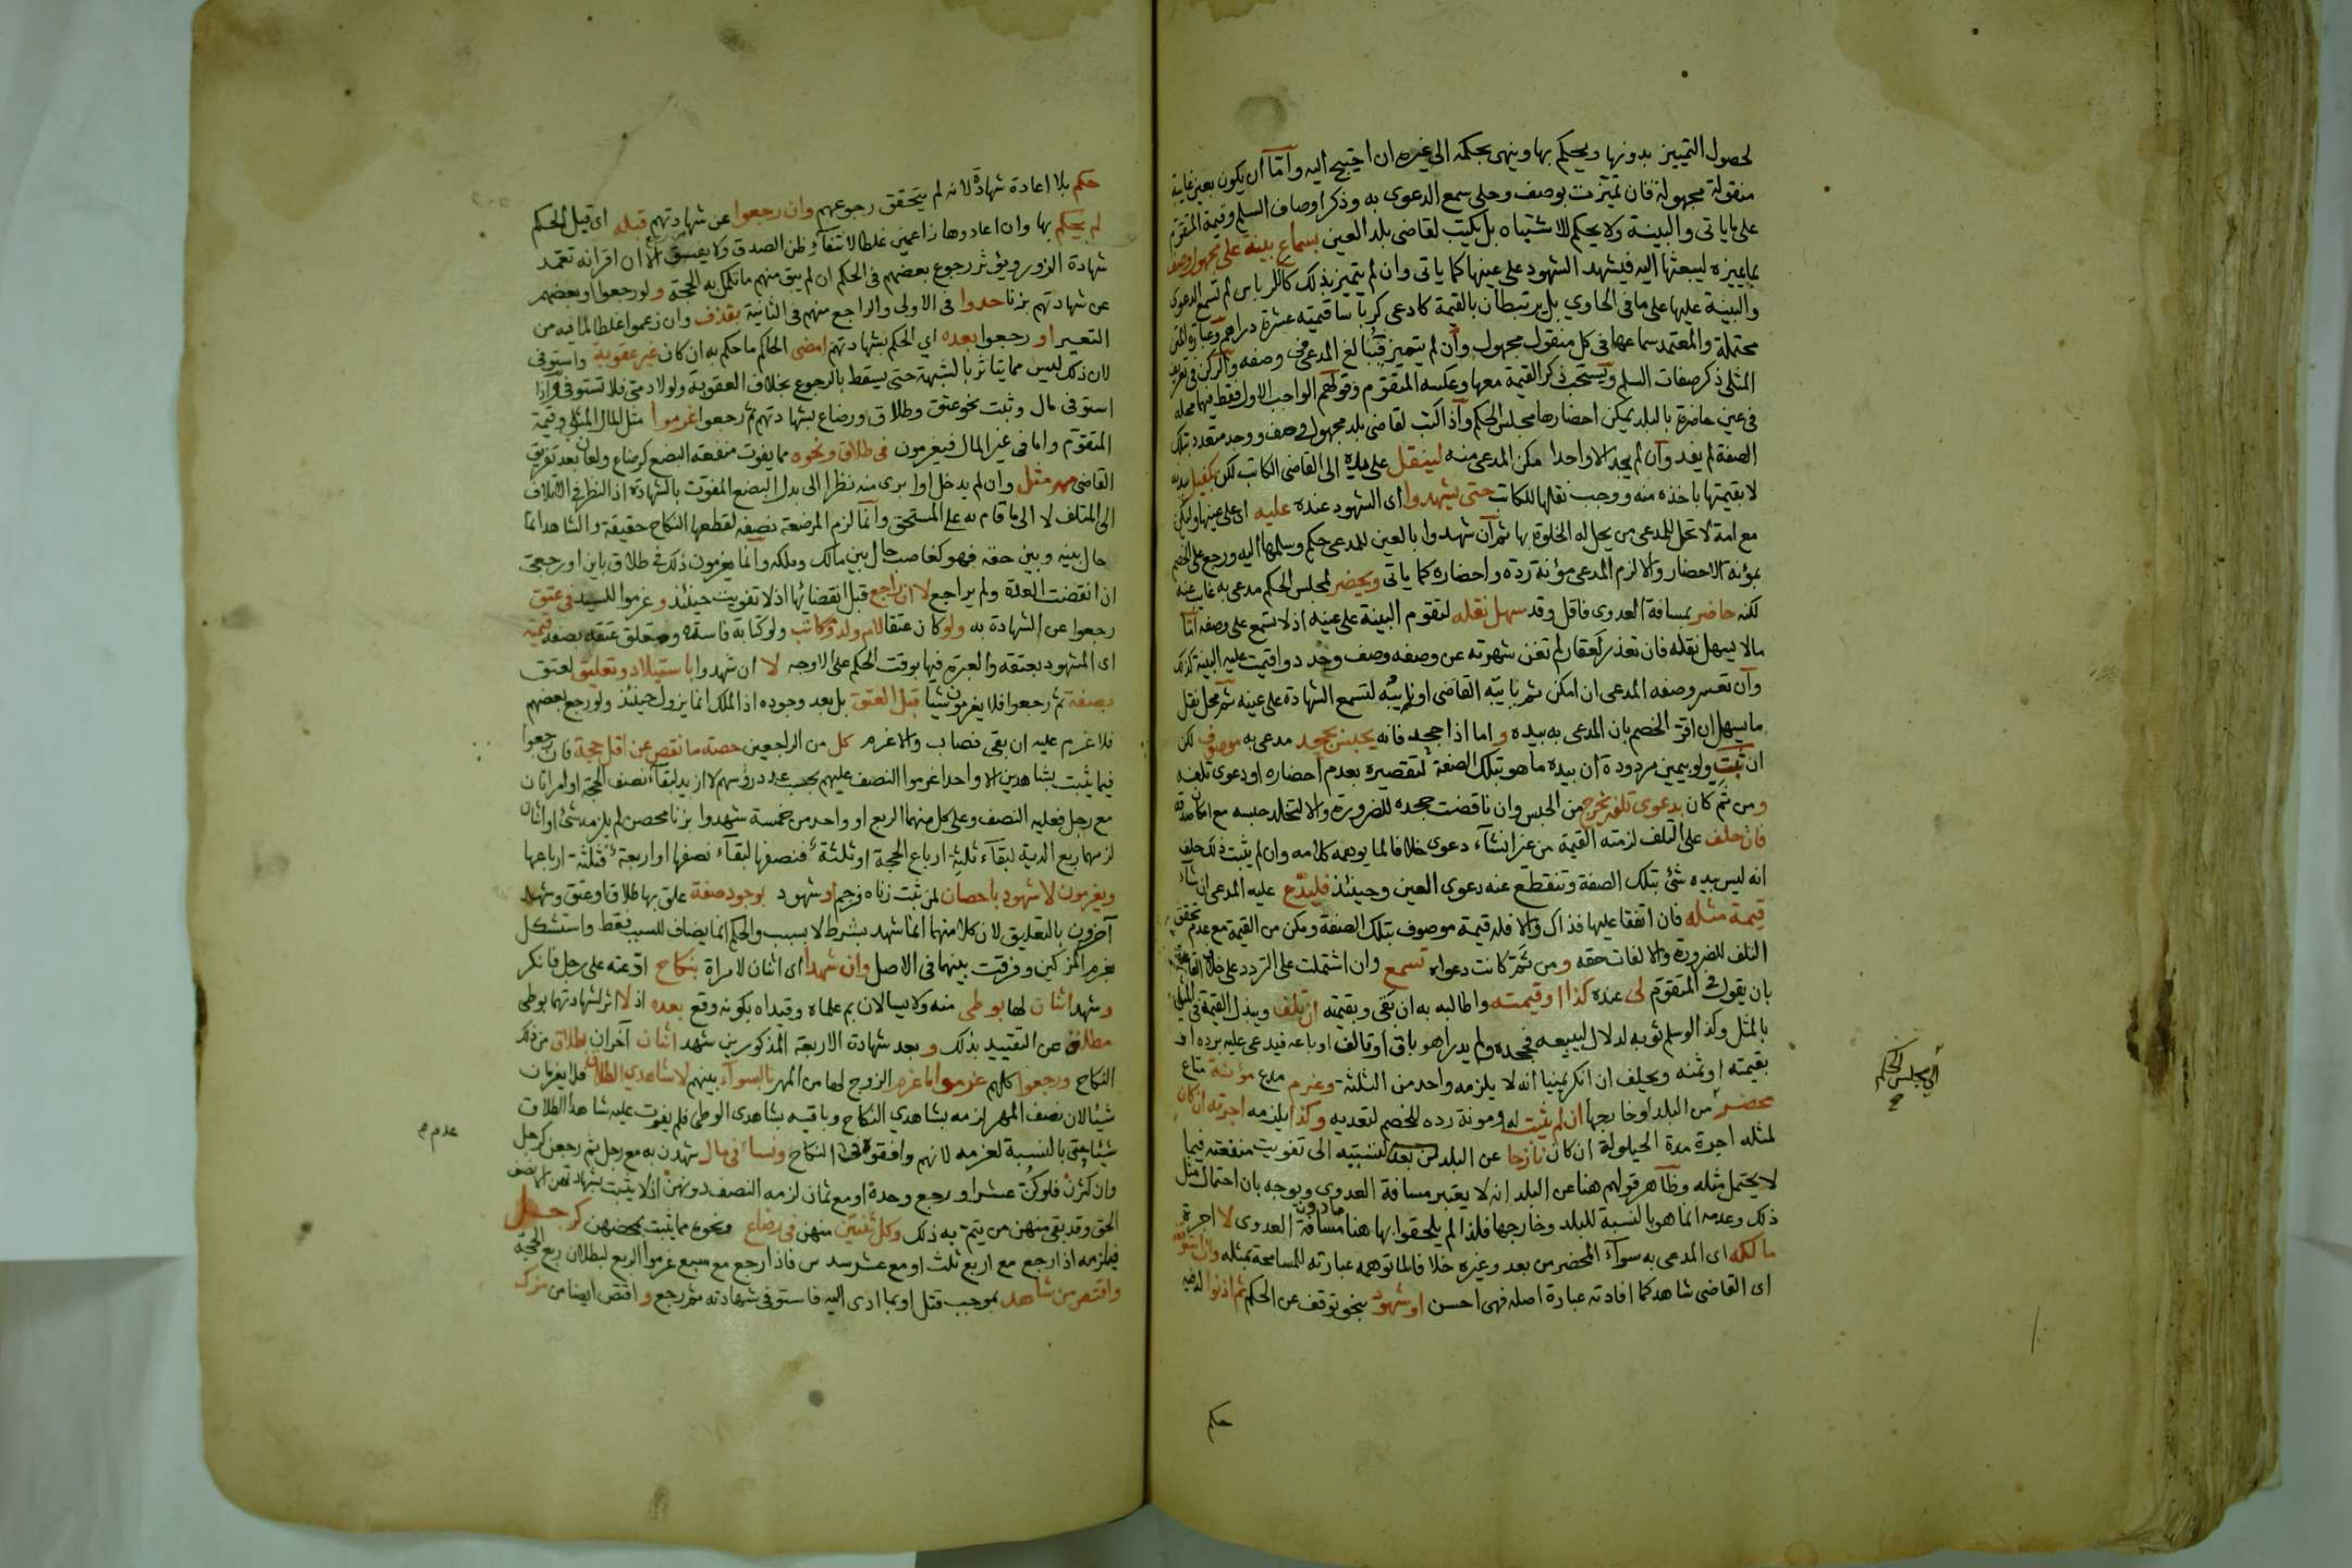 لحصول التمييز بدونها ويحكم بها وينهى بحكمه الى غيره ان احتيج اليه واما ان يكون بعين غايبة
منقولة مجهولة فان تميزت بوصف وحلى سمع الدعوى به وذكر اوصاف السلم وقيمة المتقوم
على ما ياتى والبينة ولا يحكم للاشتباه بل يكتب لقاضى بلد العين بسماع بينة على مجهول وصف
بما يميزه ليبعثها اليه فيشهد الشهود على عينها كما ياتى وان لم يتميز بذلك كالكرباس لم تسمع الدعوى
والبينة عليها على ما فى الحاوي بل يرتبطان بالقيمة كادعى كرباسا قيمته عشرة دراهم وعبارة المتن
محتملة والمعتمد سماعها فى كل منقول مجهول وان لم يتميز فيبالغ المدعى فى وصفه والركن فى تعريف
المثلى ذكر صفات السلم ويستحب ذكر القيمة معها وعكسه المتقوم وقولهم الواجب الاول فقط فيهما محله
فى عين حاضرة بالبلد يمكن احضارها مجلس الحكم واذا كتب لقاضى بلد مجهول وصف ووجد متعدد بتلك
الصفة لم يفد وان لم يجد الا واحدا مكن المدعى منه لينقل على يده الى القاضى الكاتب لكن بكفيل ببدنه
لا بقيمتها ياخذه منه ووجب نقلها للكاتب حتى يشهدوا اى الشهود عنده عليه اى على عينها وليكن
مع امة لا تحل للمدعى من يحل له الخلوة بها ثم ان شهدوا بالعين للمدعى حكم وسلمها اليه ورجع على الخصم
بمؤنة الاحضار والا لزم المدعى مؤنة رده واحضاره كما ياتى ويحضر لمجلس الحكم مدعى به غاب عنه
لكنه حاضر بمسافة العدوى فاقل وقد سهل نقله لتقوم البينة على عينه اذ لا تسمع على وصفه اما
مالا يسهل نقله فان تعذر كعقار لم تغن شهرته عن وصفه وصف وحدد واقيمت عليه البينة كذلك
وان تعسر وصفه المدعى ان امكن ثم ياتيه القاضى او نايبه لتسمع الشهادة على عينه ثم محل نقل
ما يسهل ان اقر الخصم بان المدعى به بيده واما اذا جحد فانه يحبس بجحد مدعى به موصوف لكن
ان ثبت ولو بيمين مردودة ان بيده ما هو بتلك الصفة لتقصيره بعدم احضاره او دعوى تلفه
ومن ثم كان بدعوى تلفه يخرج من الحبس وان ناقضت جحده للضرورة والا لتخلد حبسه مع امكان صدقه
فان حلف على التلف لزمته القيمة من غير انشاء دعوى خلافا لما يوهمه كلامه وان لم يثبت ذلك حلف
انه ليس بيده شئ بتلك الصفة وتنقطع عنه دعوى العين وحينئذ فليدع عليه المدعى ان شاء
قيمة مثله فان اتفقا عليها فذاك والا فله قيمة موصوف بتلك الصفة ومكن من القيمة مع عدم تحقق
التلف للضرورة والا لفات حقه ومن ثم كانت دعواه تسمع وان اشتملت على التردد على خلاف القاعدة
بان يقول فى المتقوم لى عنده كذا او قيمته واطالبه به ان بقى وبقيمته ان تلف ويبدل القيمة فى المثلى
بالمثل وكذا لو سلم ثوبه لدلال ليبيعه فجحده ولم يدر اهو باق او تالف او باعه فيدعى عليه برده او
بقيمته او ثمنه ويحلف ان انكر يمينا انه لا يلزمه واحد من الثلثة وغرم مدع مؤنة متاع
محضر من البلد او خارجها ان لم يثبت له ومونة رده للخصم لتعديه وكذا يلزمه اجرته ان كان
لمثله اجرة مدة الحيلولة ان كان نازحا عن البلد لتسببه الى تفويت منفعته فيما
لا يحتمل مثله وظاهر قولهم هنا عن البلد انه لا يعتبر مسافة العدوى ويوجه بان احتمال مثل
ذلك وعدمه انما هو بالنسبة للبلد وخارجها فلذا لم يلحقوا بها هنا مادون مسافة العدوى لا اجرة
مالكه اى المدعى به سواء المحضر من بعد وغيره خلافا لما توهمه عبارته للمسامحة بمثله وان استوقف
اى القاضى شاهد كما افادته عبارة اصله فهى احسن او شهود بنحو توقف عن الحكم ثم اذنوا له فيه
حكم
الى مجلس الحكم
حكم بلا اعادة شهادة لانه لم يتحقق رجوعهم وان رجعوا عن شهادتهم قبله اى قبل الحكم
لم يحكم بها وان اعادوها زاعمين غلطا لانتفاء ظن الصدق ولا يفسق الا ان اقر انه تعمد
شهادة الزور ويؤثر رجوع بعضهم فى الحكم ان لم يبق منهم ما تكمل به الحجة ولو رجعوا او بعضهم
عن شهادتهم بزنا حدوا فى الاولى والراجع منهم فى الثانية بقذف وان زعموا غلطا لما فيه من
التعيير او رجعوا بعده اي الحكم بشهادتهم امضى الحاكم ما حكم به ان كان غير عقوبة واستوفى
لان ذلك ليس مما يتاثر بالشبهة حتى يسقط بالرجوع بخلاف العقوبة ولو لادمى فلا تستوفى واذا
استوفى مال وثبت نحو عتق وطلاق ورضاع بشهادتهم ثم رجعوا غرموا مثل المال المثلى وقيمة
المتقوم واما فى غير المال فيغرمون فى طلاق ونحوه مما يفوت منفعة البضع كرضاع ولعان بعد تفريق
القاضى مهر مثل وان لم يدخل او ابرى منه نظرا الى بدل البضع المفوت بالشهادة اذ النظر فى الاتلاف
الى المتلف لا الى ما قام به على المستحق وانما لزم المرضعة نصفه لقطعها النكاح حقيقة والشاهد انما
حال بينه وبين حقه فهو كغاصب حال بين مالك وملكه وانما يغرمون ذلك فى طلاق باين او رجعى
ان انقضت العدة ولم يراجع لا ان راجع قبل انقضائها اذ لا تفويت حينئذ وغرموا للسيد فى عتق
رجعوا عن الشهادة به ولو كان عتقا لام ولد ومكاتب ولو كتابة فاسدة ومعلق عتقه بصفة قيمته
اى المشهود بعتقه والعبرة فيها بوقت الحكم على الاوجه لا ان شهدوا باستيلاد وتعليق لعتق
بصفة ثم رجعوا فلا يغرمون شيا قبل العتق بل بعد وجوده اذ الملك انما يزول حينئذ ولو رجع بعضهم
فلا غرم عليه ان بقى نصاب والا غرم كل من الراجعين حصته ما نقص عن اقل حجة فان رجعوا
فيما يثبت بشاهدين الا واحدا غرموا النصف عليهم بحسب عدد رؤسهم لا ازيد لبقاء نصف الحجة او امراتان
مع رجل فعليه النصف وعلى كل منهما الربع او واحد من خمسة شهدوا بزنا محصن لم يلزمه شئ او اثنان
لزمهما ربع الدية لبقاء ثلثة ارباع الحجة او ثلثة فنصفها لبقاء نصفها او اربعة فثلثة ارباعها
ويغرمون لا شهود باحصان لمن ثبت زناه فرجم او شهود بوجود صفة علق بها طلاق او عتق وشهد
آخرون بالتعليق لان كلا منهما انما شهد بشرط لا بسبب والحكم انما يضاف للسبب فقط واستشكل
بغرم المزكين وفرقت بينهما فى الاصل وان شهدا اى اثنان لامراة بنكاح ادعته على رجل فانكر
وشهد اثنان لها بوطى منه ولا يسالان بم علماه وقيداه بكونه وقع بعده اذ لا اثر لشهادتهما بوطى
مطلق عن التقييد بذلك وبعد شهادة الاربعة المذكورين شهد اثنان آخران بطلاق من ذلك
النكاح ورجعوا كلهم غرموا ما غرم الزوج لها من المهر بالسواء بينهم لا شاهدي الطلاق فلا يغرمان
شيئا لان نصف المهر لزمه بشاهدي النكاح وباقيه بشاهدى الوطى فلم يفوت عليه شاهدا الطلاق
شيئا حتى بالنسبة لغرمه لانهم وافقوه النكاح ونساء فى مال شهدن به مع رجل ثم رجعن كرجل
وان كثرن فلو كن عشرا ورجع وحده او مع ثمان لزمه النصف دونهن اذ لا يثبت بشهادتهن الا نصف
الحق وقد بقى منهن من يتم به ذلك وكل ثنتين منهن فى رضاع ونحوه مما يثبت بمحضهن كرجل
فيلزمه اذا رجع مع اربع ثلث او مع عشر سدس فاذا رجع مع سبع غرموا الربع لبطلان ربع الحجة
واقتص من شاهد بموجب قتل او بما ادى اليه فاستوفى بشهادته ثم رجع واقتص ايضا من مزك
عدم